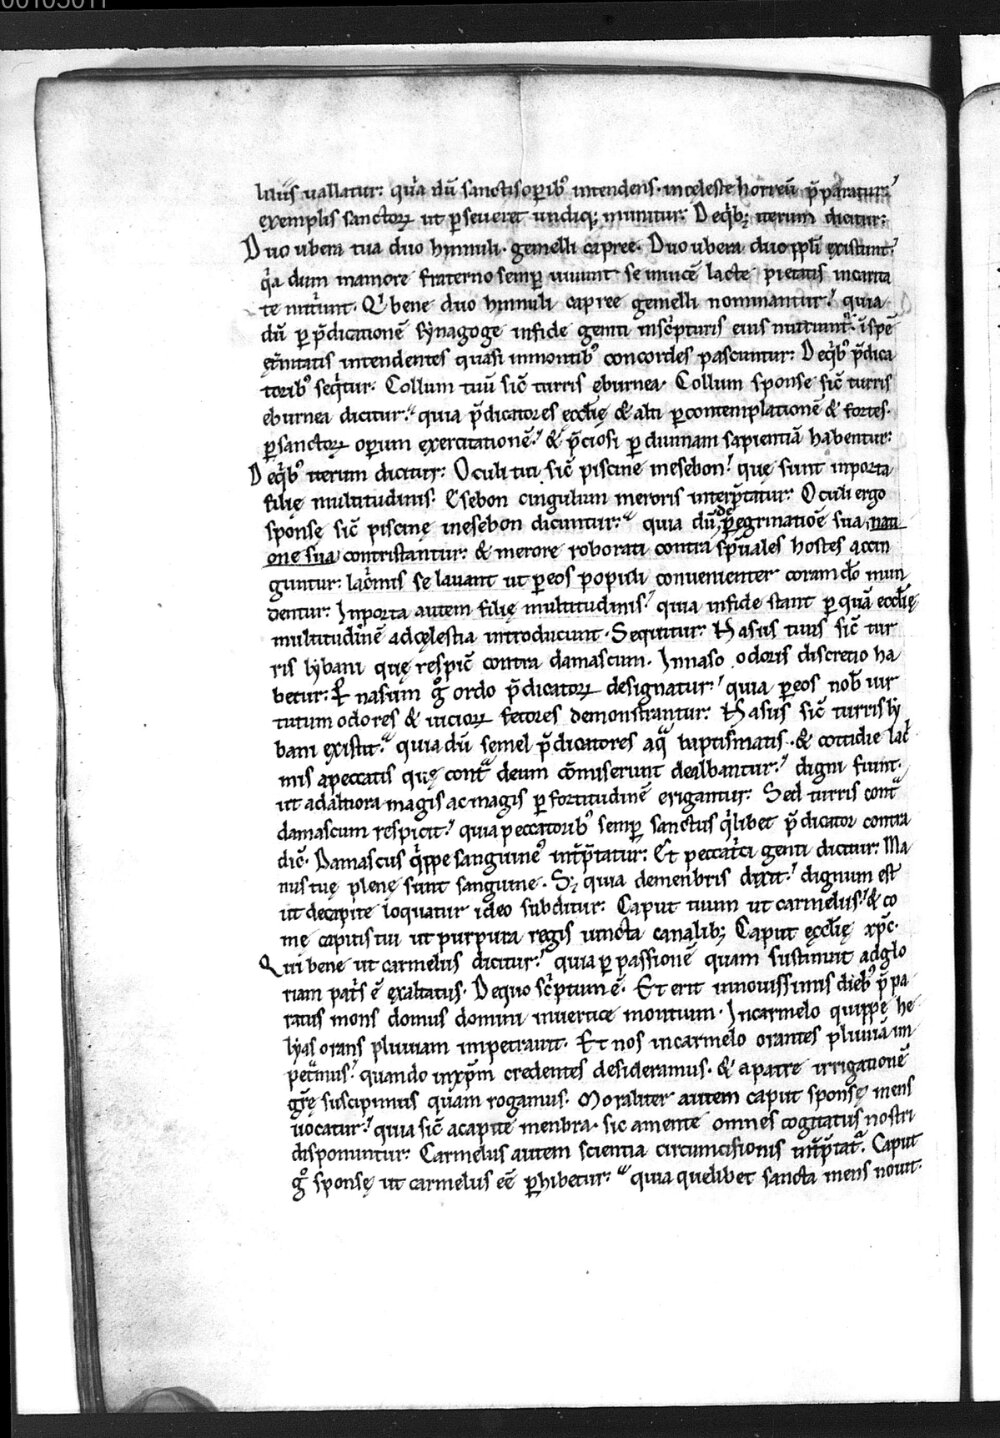 liliis uallatur: quia dū sanctis oꝑib' intendens· in celeste horreū p̄paratur:'
exemplis sanctoꝝ ut ꝑseueret undiq; munitur: De q̇b; iterum dicitur:
Duo ubera tua duo hynnuli· gemelli capreę· Duo ubera duo pp̄li existunt:'
q̇a dum in amore fraterno semꝑ uiuunt se inuicē lacte pietatis in carita
te nutriunt· Qi bene duo hinnuli capreę gemelli nominantur:' quia
dū ꝑ p̄dicationē synagoge in fide geniti in sċpturis eius nutriunt̉· ī spe
ęt̉nitatis intendentes quasi in montib' concordes pascuntur: De q̇b' p̄dica
torib' seq̇tur· Collum tuū sic̄ turris eburnea· Collum sponse sic̄ turris
eburnea dicitur:' quia p̄dicatores ęccl̄ię & alti ꝑ contemplationē & fortes·
ꝑ sanctoꝝ oꝑum exercitationē:' & p̄ciosi ꝑ diuinam sapientiā habentur:
De q̇b' iterum dicitur: Oculi tui sic̄ piscine in esebon:' quę sunt in porta
filię multitudinis: Esebon cingulum meroris interp̄tatur: Oculi ergo
sponsę sic̄ piscinę in esebon dicuntur:' quia dū de ꝑegrinatiōe sua nati
one sua contristantur: & merore roborati contra sp̄uales hostes accin
guntur: lac̉mis se lauant ut ꝑ eos populi conuenienter coram dō mun
dentur: In porta autem filię multitudinis:' quia in fide stant ꝑ quā ęccl̄ię
multitudinē ad cęlestia introducunt· Sequitur: Nasus tuus sic̄ tur
ris lybani quę respic̄ contra damascum· In naso odoris discretio ha
betur: Per nasum g̊ ordo p̄dicatoꝝ designatur:' quia ꝑ eos nob̄ uir
tutum odores & uicioꝝ fetores demonstrantur: Nasus sic̄ turris ly
bani existit:' quia dū semel p̄dicatores aq̄ baptismatis· & cottidie lac̉
mis a peccatis quę cont̄ deum cōmiserunt dealbantur:' digni fiunt·
ut ad altiora magis ac magis ꝑ fortitudinē erigantur· Sed turris cont̄
damascum respicit:' quia peccatorib' semꝑ sanctus q̇libet p̄dicator contra
dic̄· Damascus q̇ppe sanguine' int̉p̄tatur: Et peccat̉ci genti dicitur: Ma
nus tuę plenę sunt sanguine· S; quia de menbris dixit:' dignum est
ut de capite loquatur ideo subditur: Caput tuum ut carmelus:' & co
mę capitis tui ut purpura regis uincta canalib; Caput ęccl̄ię xp̄c·
Qui bene ut carmelus dicitur:' quia ꝑ passionē quam sustinuit ad glo
riam pat̉s ē exaltatus· De quo sc̉ptum ē· Et erit in nouissimis dieb' p̄pa
ratus mons domus domini in uertice montium· In carmelo quippe he
lyas orans pluuiam impetrauit· Et nos in carmelo orantes pluuiā im
pet̄mus:' quando in xp̄m credentes desideramus· & a patre irrigationē
gr̄ę suscipimus quam rogamus· Moraliter autem caput sponsę mens
uocatur:' quia sic̄ a capite menbra· sic a mente omnes cogitatus nostri
disponuntur: Carmelus autem scientia circumcisionis int̉p̄tat̉· Caput
g̊ sponsę ut carmelus eē ꝑhibetur:' quia quelibet sancta mens nouit·